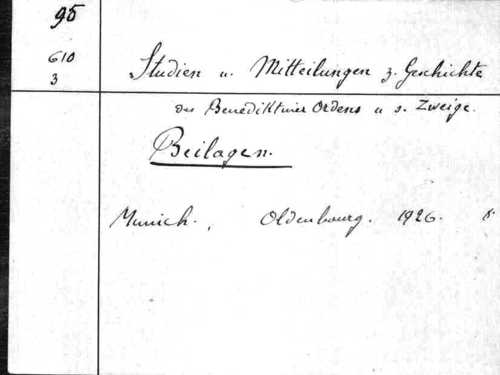 95
610
3
Studien u. Mitteilungen z. Geschichte
des Benediktiner Ordens u s. Zweige.
Beilagen.
Munich. , Oldenbourg. 1926. 8°